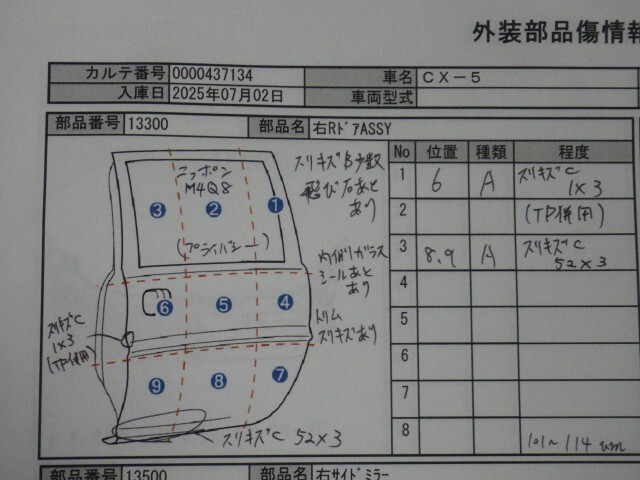 外装部品傷情報
カルテ番号 0000437134 車名 CX-5
入庫日 2025年07月02日 車両型式
部品番号 13300 部品名 右RドアASSY
No 位置 種類 程度
1 6 A スリキズC 1×3
2 (TP併用)
3 8.9 A スリキズC 52×3
4
5
6
7
8 101~114 um
ニッポン
M4Q8
(プライバシー)
③ ② ①
⑥ ⑤ ④
⑨ ⑧ ⑦
スリキズB少数
飛び石あと
あり
内側ガラス
シールあと
あり
トリム
スリキズあり
スリキズC
1×3
(TP併用)
スリキズC 52×3
部品番号 13500 部品名 右サイドミラー